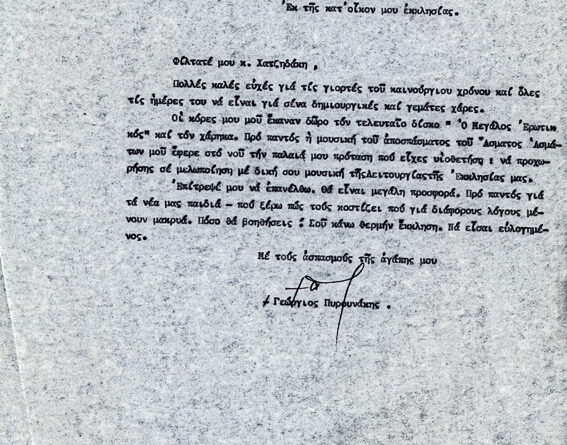 Ἐκ τῆς κατ'οἶκον μου ἐκκλησίας.
Φίλτατέ μου κ. Χατζηδάκη,
Πολλές καλές εὐχές γιά τίς γιορτές τοῦ καινούργιου χρόνου καί ὅλες
τίς ἡμέρες του νά εἶναι γιά σένα δημιουργικές καί γεμάτες χάρες.
Οἱ κόρες μου μοῦ ἔκαναν δῶρο τόν τελευταῖο δίσκο " Ὁ Μεγάλος Ἐρωτι
κός" καί τόν χάρηκα. Πρό παντός ἡ μουσική τοῦ ἀποσπάσματος τοῦ Ἄσματος Ἀσμά
των μοῦ ἔφερε στό νοῦ τήν παλαιά μου πρόταση πού εἶχες υἱοθετήση : νά προχω
ρήσης σέ μελωποίηση μέ δική σου μουσική τῆςΛειτουργίαςτῆς Ἐκκλησίας μας.
Ἐπίτρεψέ μου νά ἐπανέλθω. Θά εἶναι μεγάλη προσφορά. Πρό παντός γιά
τά νέα μας παιδιά - πού ξέρω πῶς τούς κοστίζει πού γιά διάφορους λόγους μέ-
νουν μακρυά. Πόσο θά βοηθήσεις ! Σοῦ κάνω θερμήν ἔκκληση. Νά εἶσαι εὐλογημέ-
νος.
Μέ τούς ἀσπασμούς τῆς ἀγάπης μου
Γεώργιος Πυρουνάκης .